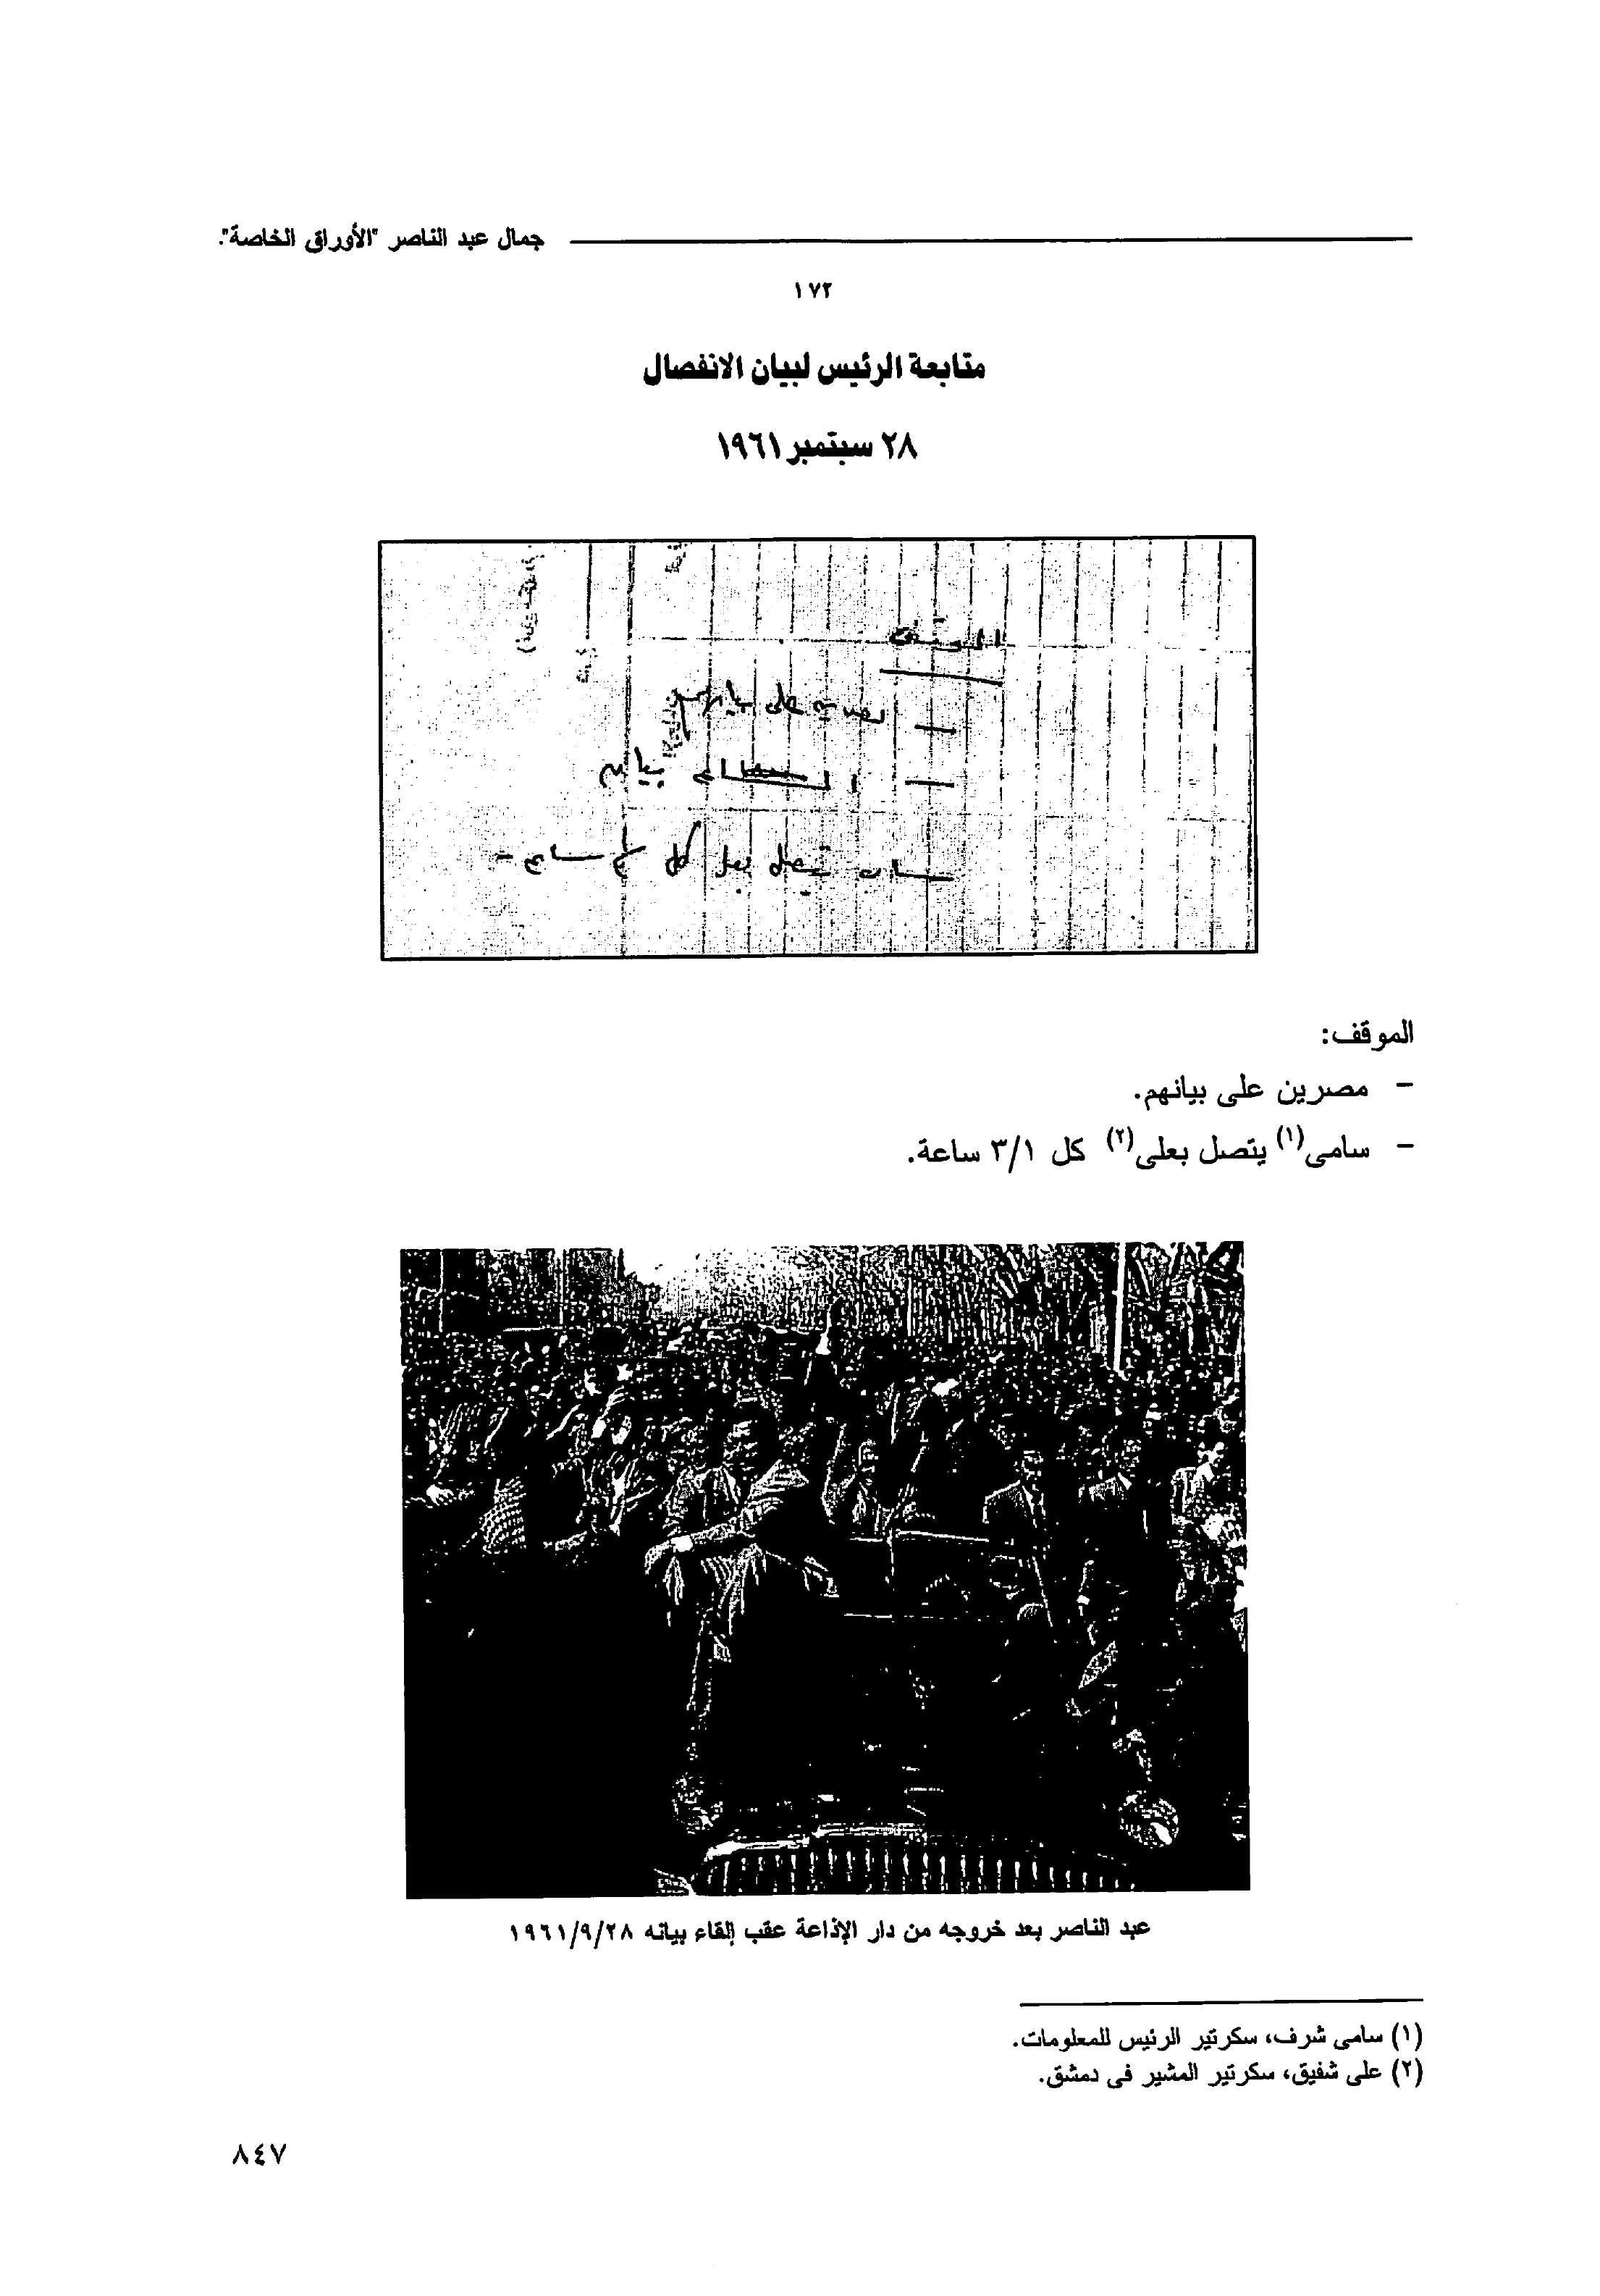 جمال عبد الناصر "الأوراق الخاصة".
١٧٢
متابعة الرئيس لبيان الانفصال
٢٨ سبتمبر ١٩٦١
الموقف
على بيانهم
بيانهم
يتصل بعلى كل
الموقف:
- مصرين على بيانهم.
- سامى(١) يتصل بعلى(٢) كل ٣/١ ساعة.
عبد الناصر بعد خروجه من دار الإذاعة عقب إلقاء بيانه ١٩٦١/٩/٢٨
(١) سامى شرف، سكرتير الرئيس للمعلومات.
(٢) على شفيق، سكرتير المشير فى دمشق.
٨٤٧